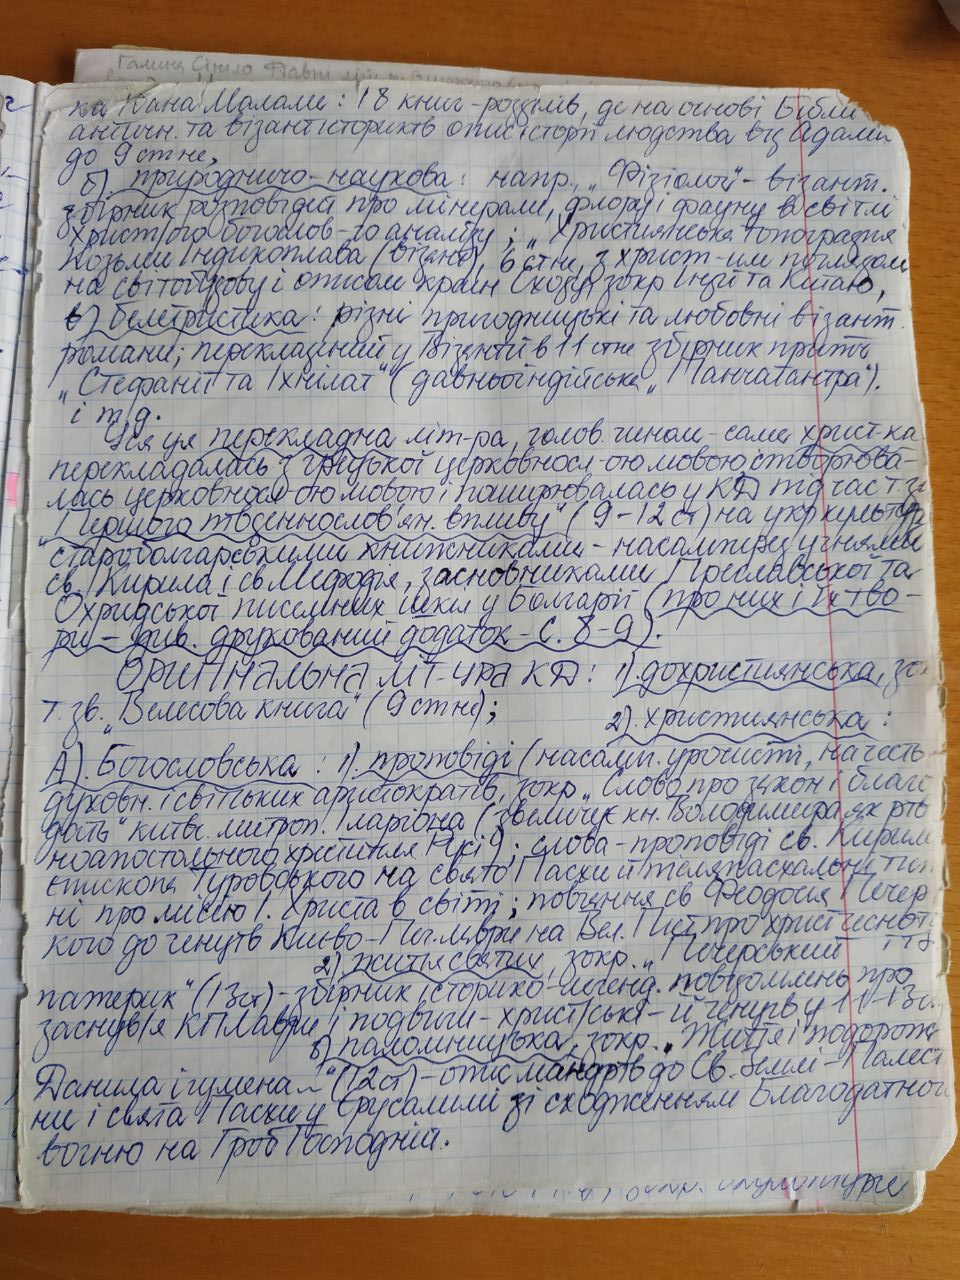 Галина Сініло Давні літ
ка Івана Малали: 18 книг-розділів, де на основі Біблії
античн. та візант істориків опис історії людства від Адама
до 9 ст не,
б). природничо-наукова: напр., „Фізіолог" - візант.
збірник розповідей про мінерали, флору і фауну в світлі
христ/ого богослов-го аналізу; „Християнська топографія
Козьми Індикоплава (візант), 6 ст не, з христ-им поглядом
на світобудову і описом країн Сходу, зокр Індії та Китаю,
в) белетристика: різні пригодницькі та любовні візант.
романи; перекладений у Візантії в 11 ст не збірник притч
„Стефаніт та Іхнілат" (давньоіндійська „Панчатантра").
і т.д.
Уся ця перекладна літ-ра, голов. чином - саме христ-ка
перекладалась з грецької церковносл-ою мовою, створюва-
лась церковносл-ою мовою і поширювалась у КД під час т. зв
„Першого південнослов'ян. впливу" (9-12 ст) на укр культуру
староболгарськими книжниками - насамперед учнями
св. Кирила і св Мефодія, засновниками Преславської та
Охридської писемних шкіл у Болгарії (про них і їх тво-
ри - див. друкований додаток - с. 8-9).
Оригінальна літ-ура КД: 1). дохристиянська, зок
т. зв. „Велесова книга" (9 ст не);
2). християнська:
А). Богословська: 1). проповіді (насамп. урочисті, на честь
духовн. і світських аристократів, зокр „Слово про закон і благо
дать" київс. митроп. Іларіона (звеличує кн. Володимира як рів
ноапостального хрестителя Русі); слова-проповіді св. Кирила
єпископа Туровського на свято Пасхи й післяпасхальні тиж
ні про місію І. Христа в світі; повчання св Феодосія Печер
кого до ченців Києво-Печ. лаври на Вел. Піст про христ чеснот
2) житія святих, зокр. „Печерський
патерик" (13 ст) - збірник історико-легенд. повідомлень про
заснув/я КПЛаври і подвиги - христ/ські-й ченців у 11-13 ст
3) паломницька, зокр. „Житіє і подорож
Данила ігумена" (12 ст) - опис мандрів до Св. Землі - Палест
ни і свята Пасхи у Єрусалимі зі сходженням Благодатног
вогню на Гроб Господній.